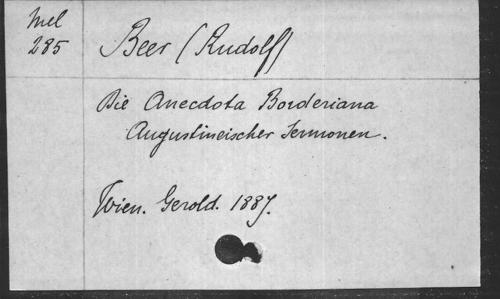 Mel
285
Beer (Rudolf)
Die Anecdota Borderiana
Augustineischer Sermonen.
Wien. Gerold. 1887.